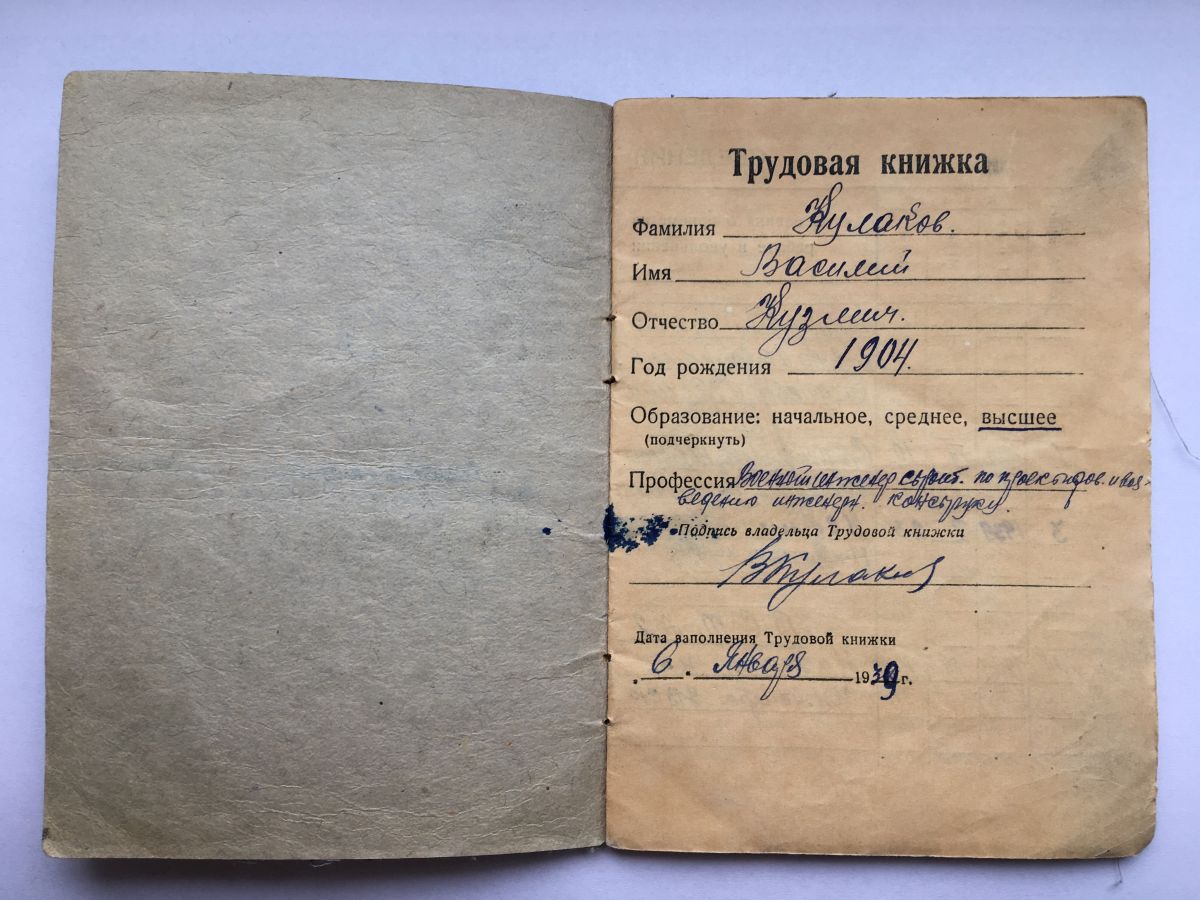 Трудовая книжка
Фамилия Кулаков.
Имя Василий
Отчество Кузмич.
Год рождения 1904.
Образование: начальное, среднее, высшее
(подчеркнуть)
Профессия Военный инженер строит. по проектиров. и воз-
ведению инженерн. конструкц.
Подпись владельца Трудовой книжки
ВКулаков
Дата заполнения Трудовой книжки
6. Января 1939 г.